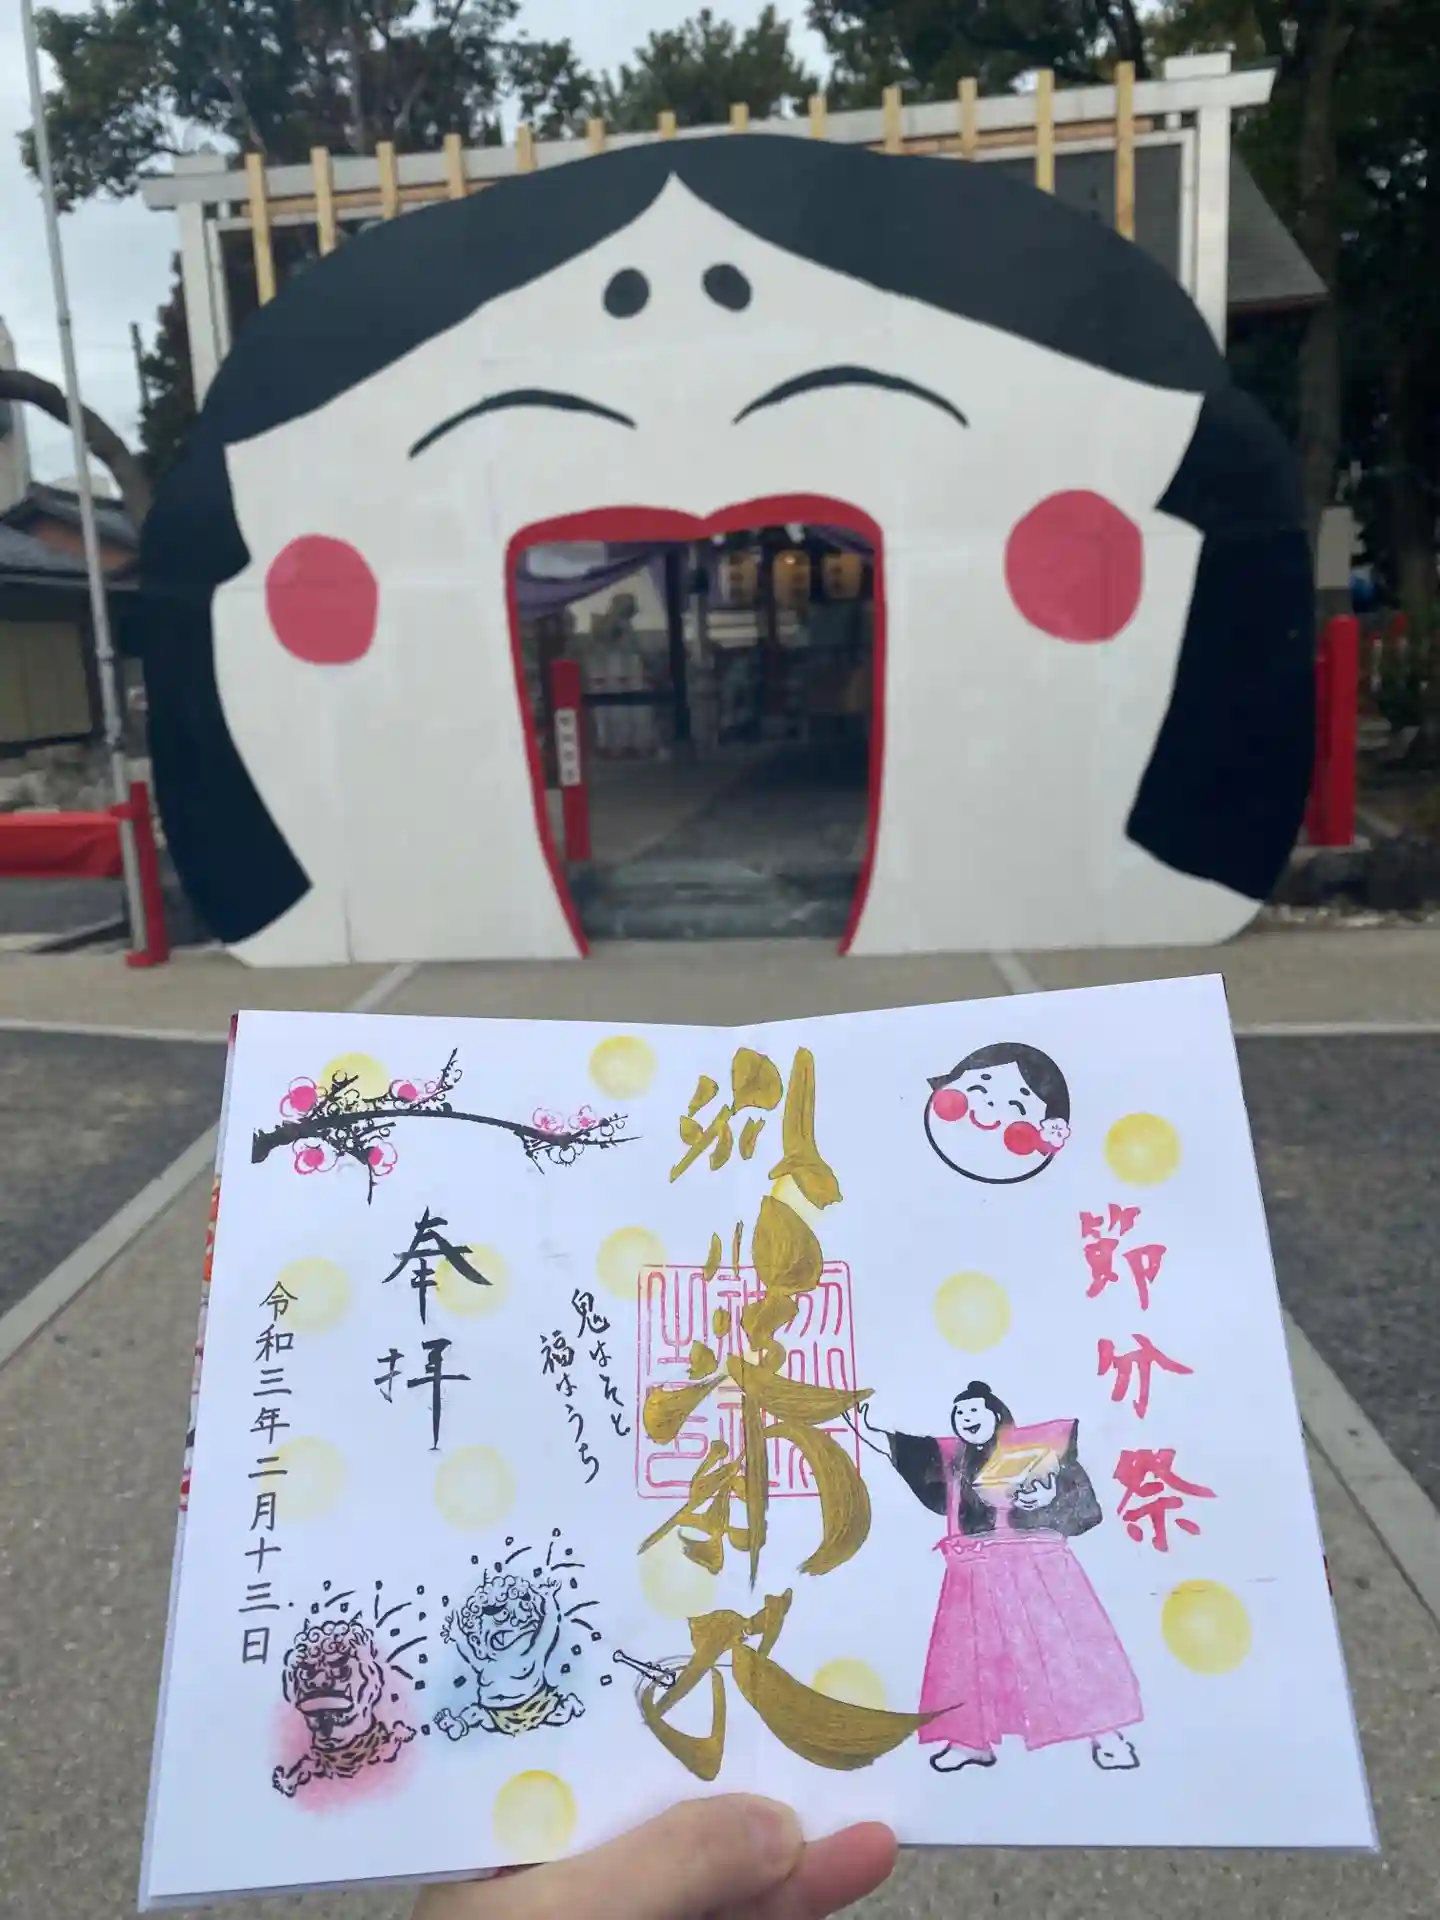 節分祭
別小江神社
鬼はそと
福はうち
奉拝
令和三年二月十三日